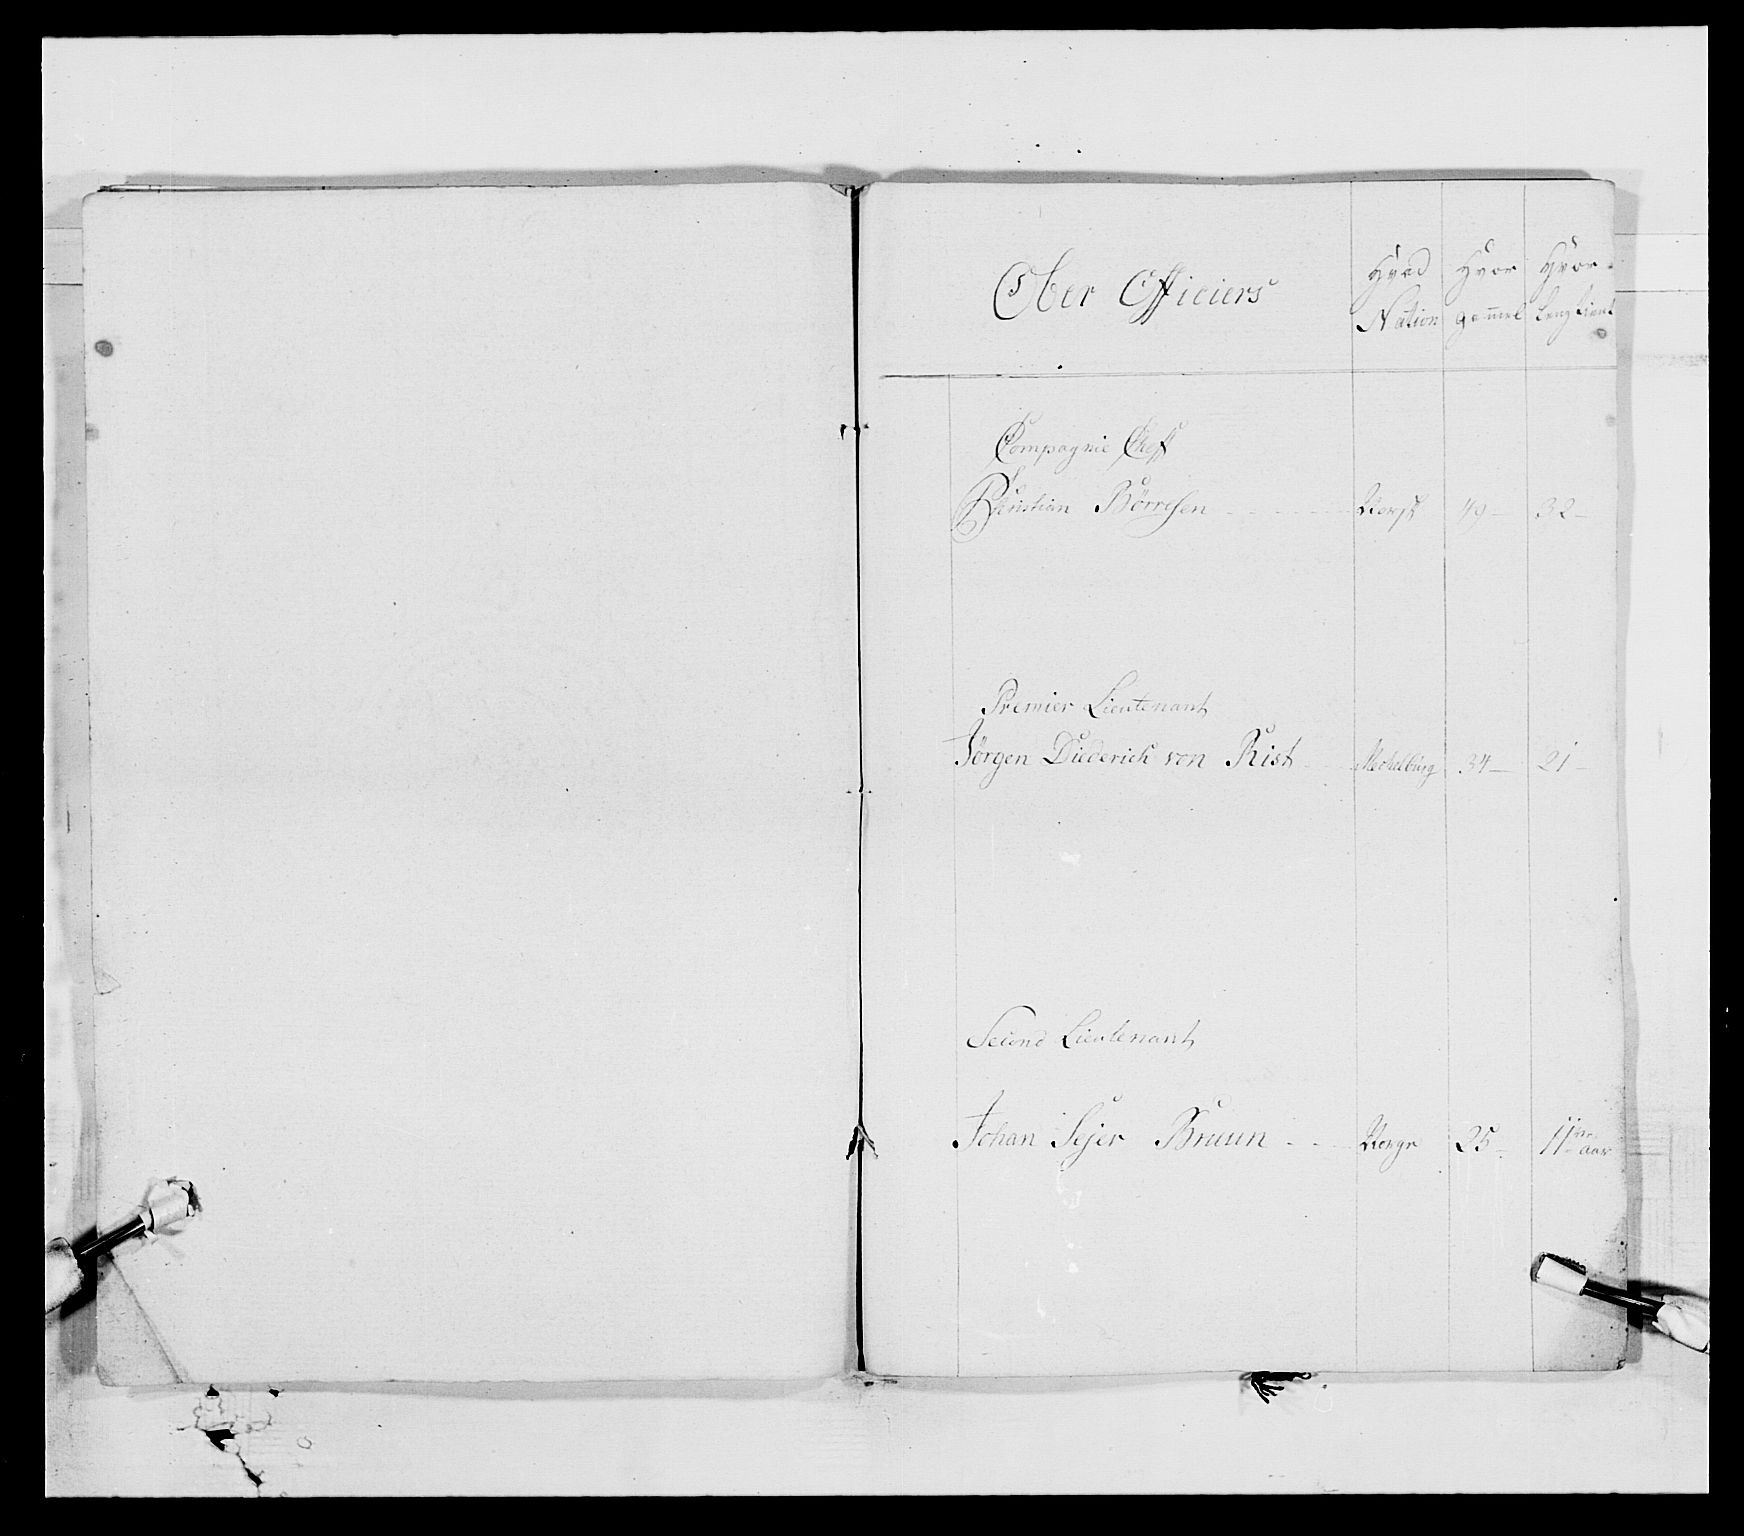 Ober Officiers Hvad Nation Hvor gammel Hvor Leng tient
Compagnie Cheff
Christian Börresen Norsk 49 32
Premier Lieutenant
Jörgen Diederich von Rist Mechelburg 34 21
Second Lieutenant
Johan Sejer Bruun Norge 25 11 aar